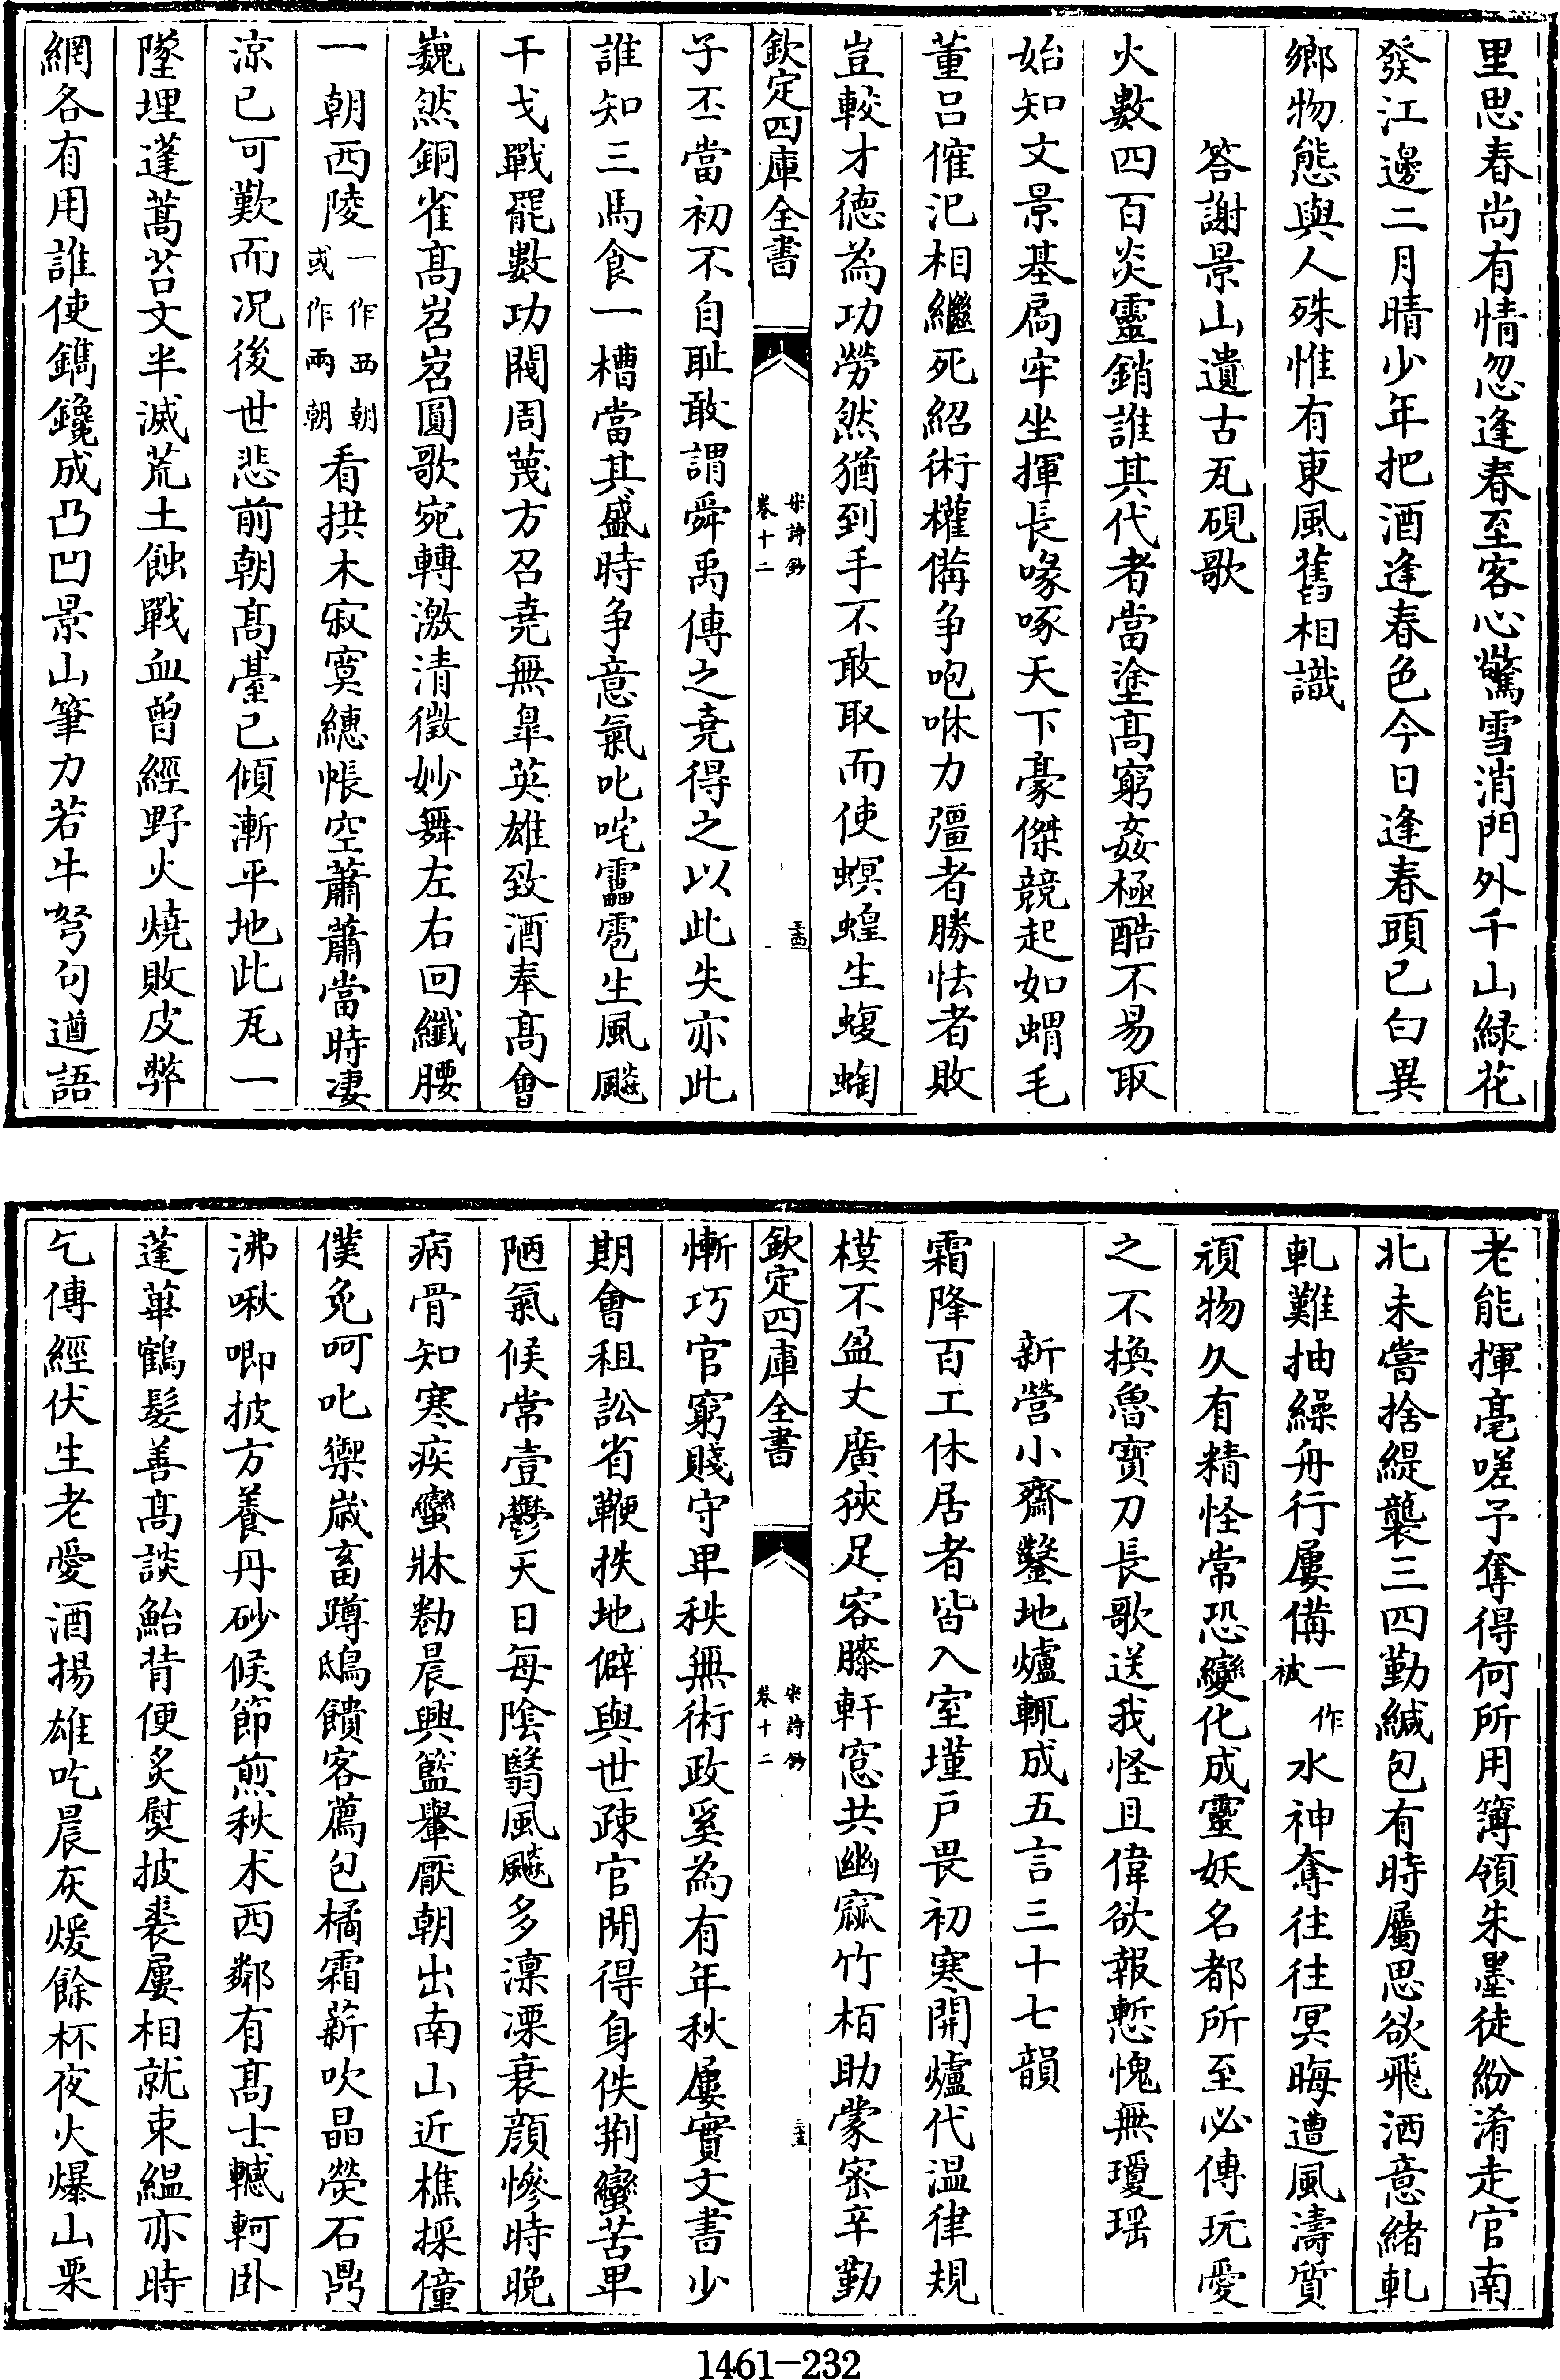 里思春尚有情忽逢春至客心驚雪消門外千山緑花
發江邊二月晴少年把酒逢春色今日逢春頭已白異
鄉物態與人殊惟有東風舊相識
答謝景山遺古瓦硯歌
火數四百炎靈銷誰其代者當塗高窮姦極酷不易取
始知文景基扃牢坐揮長喙啄天下豪傑競起如蝟毛
董呂傕汜相繼死紹術權備争咆咻力彊者勝怯者敗
豈較才德為功勞然猶到手不敢取而使螟蝗生蝮蜪
欽定四庫全書
宋詩鈔
卷十二
三十四
子丕當初不自恥敢謂舜禹傳之堯得之以此失亦此
誰知三馬食一槽當其盛時争意氣叱咤靁雹生風飇
干戈戰罷數功閥周蔑方召堯無臯英雄致酒奉髙會
巍然銅雀髙岧岧圓歌宛轉激清徵妙舞左右回纖腰
一朝西陵一作西朝或作兩朝看拱木寂寞繐帳空蕭蕭當時凄
涼已可歎而况後世悲前朝髙臺已傾漸平地此瓦一
墜埋蓬蒿苔文半滅荒土蝕戰血曾經野火燒敗皮弊
網各有用誰使鐫鑱成凸凹景山筆力若牛弩句遒語
老能揮毫嗟予奪得何所用簿領朱墨徒紛淆走官南
北未嘗捨緹襲三四勤緘包有時屬思欲飛洒意緒軋
軋難抽繰舟行屢備一作被水神奪往往冥晦遭風濤質
頑物久有精怪常恐變化成靈妖名都所至必傳玩愛
之不換魯寳刀長歌送我怪且偉欲報慙愧無瓊瑶
新營小齋鑿地爐輒成五言三十七韻
霜降百工休居者皆入室墐戸畏初寒開爐代温律規
模不盈丈廣狹足容膝軒窓共幽窳竹栢助蒙密辛勤
欽定四庫全書
宋詩鈔
卷十二
三十五
慚巧官窮賤守卑秩無術政奚為有年秋屢實文書少
期會租訟省鞭抶地僻與世疎官閒得身佚荆蠻苦卑
陋氣候常壹鬱天日毎陰翳風飇多凛凓衰顔慘時晚
病骨知寒疾蠻牀勌晨興籃轝厭朝出南山近樵採僮
僕免呵叱禦嵗畜蹲鴟饋客薦包橘霜薪吹晶熒石鼎
沸啾唧披方養丹砂候節煎秋朮西鄰有髙士轗軻卧
蓬蓽鶴髪善髙談鮐背便炙熨披裘屢相就束縕亦時
乞傳經伏生老愛酒揚雄吃晨灰煖餘杯夜火爆山栗
1461-232